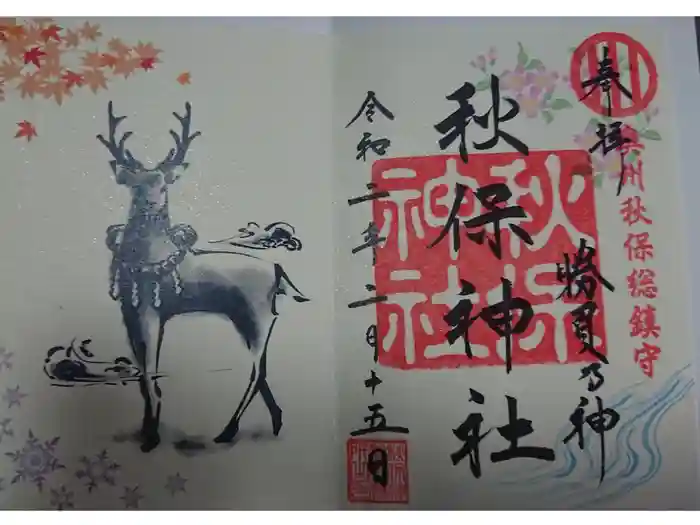 奉拝
奥州秋保総鎮守
勝負乃神
秋保神社
秋保神社
令和二年二月十五日